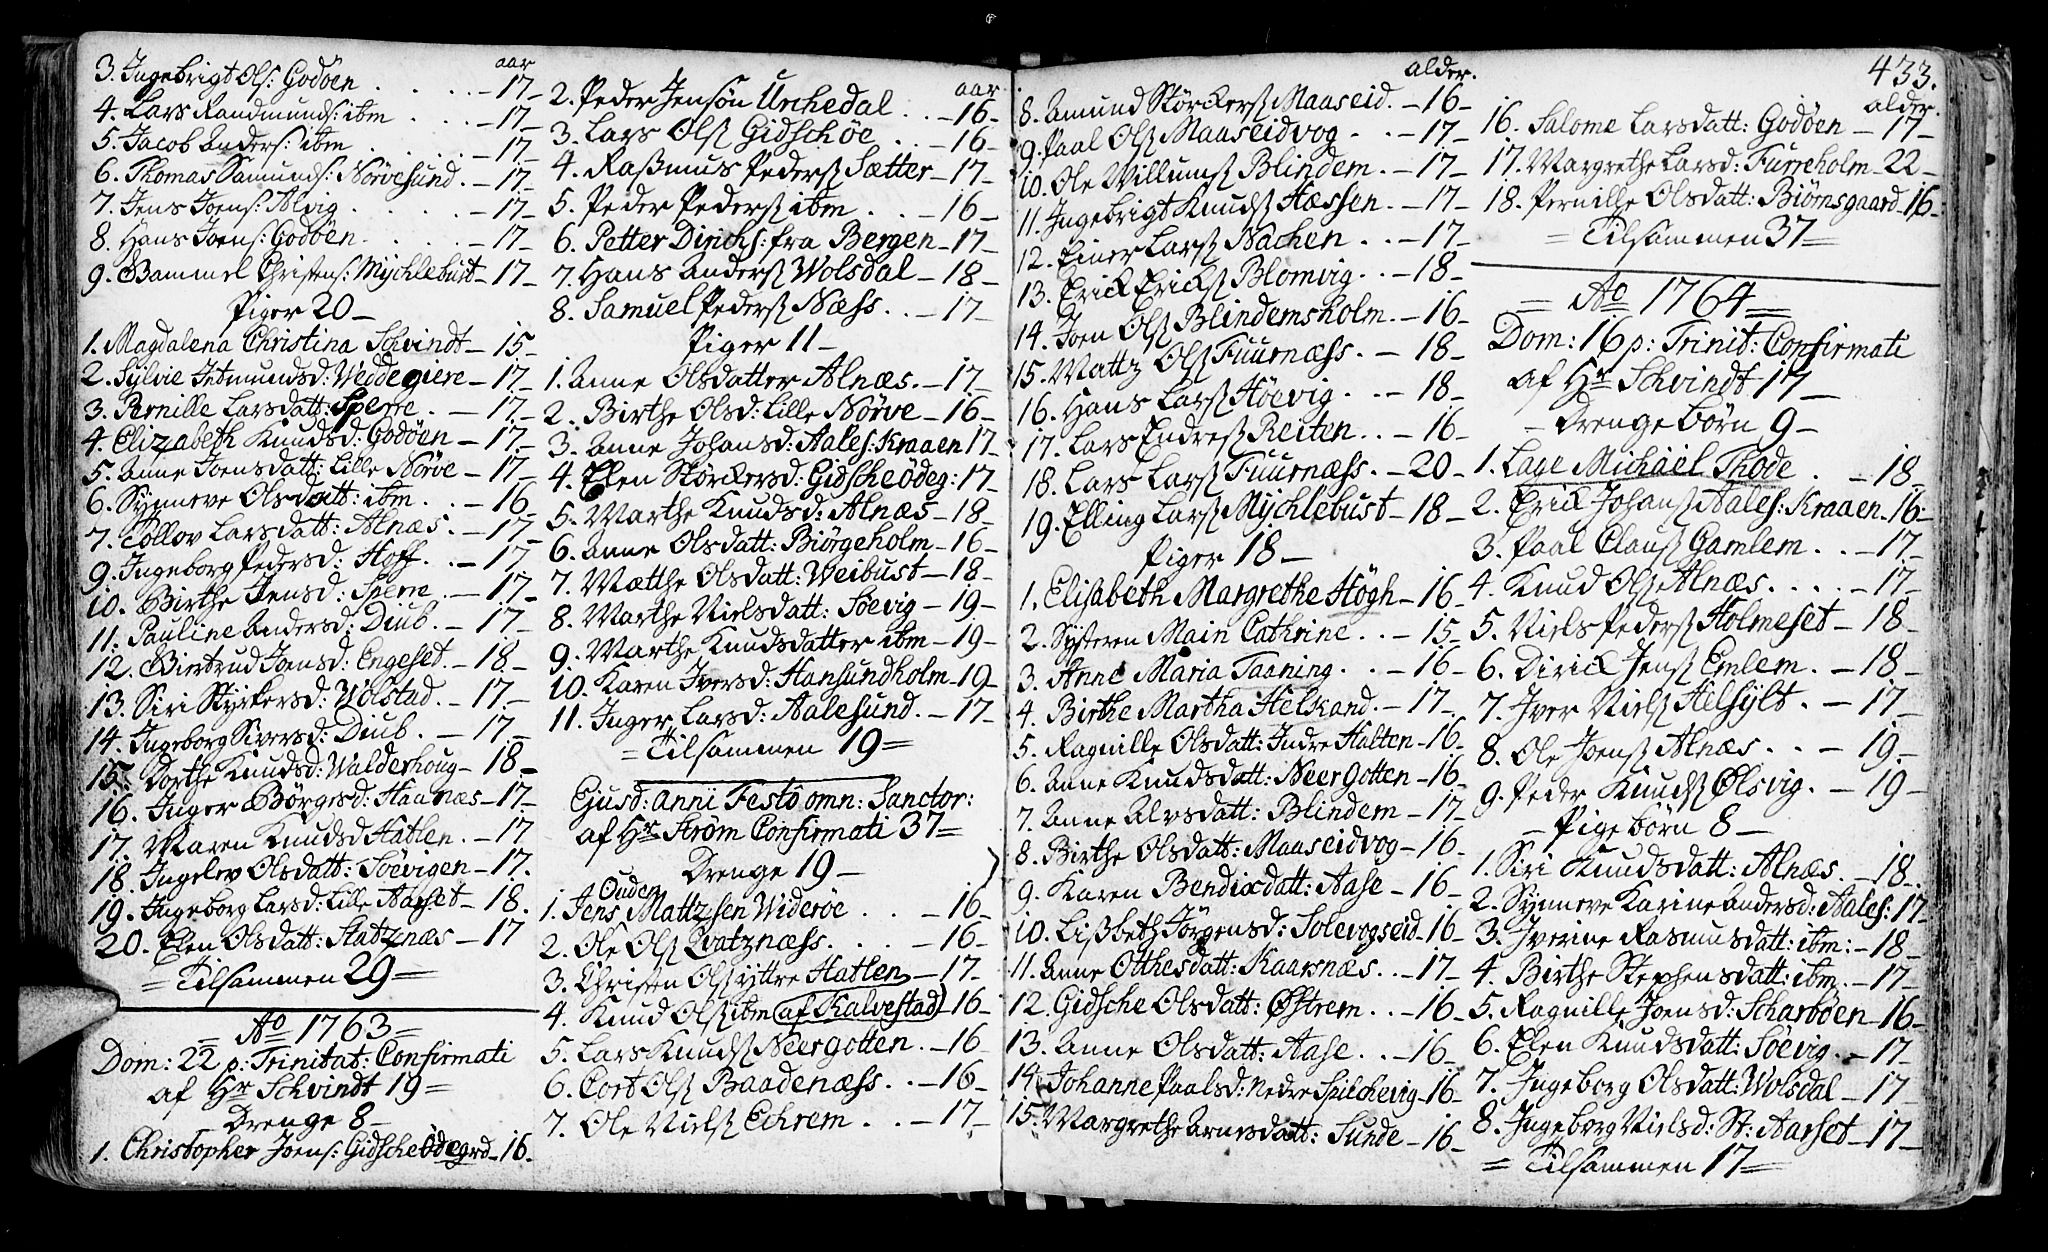 aar
3. Ingebrigt Ols: Godöen . . . . -17-
4. Lars Randmunds: ibm . . . -17-
5. Jacob Anders: ibm . . . . -17-
6. Thomas Samunds: Nörvesund. -17-
7. Jens Joens: Alvig . . . . -17-
8. Hans Joens: Godöen . . . . -17-
9. Gammel Christens: Mÿchlebust -17-
Piger 20-
1. Magdalena Christina Schvindt -15-
2. Sylvie Jetmundsd: Weddegiere -17-
3. Pernille Larsdatt: Sperre . -17-
4. Elizabeth Knudsd: Godöen -17-
5. Anne Joensdatt: Lille Nörve -17-
6. Sÿnneve Olsdatt: ibm . . -16-
7. Tollov Larsdatt: Alnæs . -17-
9. Ingeborg Pedersd: Hoff . . -17
10. Birthe Jensd: Sperre . -17-
11. Pauline Andersd: Diub. -17-
12. Giertrud Joensd: Engeset. -18-
13. Siri Stÿrkersd: Wolstad. -17-
14. Ingeborg Siversd: Diub. -17-
15. Dorthe Knudsd: Walderhoug -18-
16. Inger Börgesd: Haanæs -17-
17. Maren Knudsd Hatlen. -17
18. Ingelev Olsdatt: Söevigen -17.
19. Ingeborg Larsd: Lille Aarset -18.
20. Elen Olsdatt: Statznæs -17
=Tilsammen 29=
= Ao 1763=
Dom: 22 p: Trinitat: Confirmati
af Hr Schvindt 19=
Drenge 8-
1. Christopher Joens: Gidscheödegrd -16-
aar
2. Peder Jensön Urchedal . . -16-
3. Lars Olsß Gidschöe . . -16
4. Raßmus Pedersß Sætter -17-
5. Peder Pedersß ibm . . -16-
6. Petter Dirichs: fra Bergen -17-
7. Hans Andersß Wolsdal -18-
8. Samuel Pedersß Næss . . -17-
Piger 11-
1. Anne Olsdatter Alnæs. -17-
2. Birthe Olsd: Lille Nörve -16-
3. Anne Johansd: Aales: Kraaen 17-
4. Elen Störckersd: Gidscheödeg: 17-
5. Marthe Knudsd: Alnæs -18-
6. Anne Olsdatt: Biörgeholm -16-
7. Mætthe Olsdatt: Weibust -18-
8. Marthe Nielsdatt: Söevig -19-
9. Marthe Knudsdatter ibm -19-
10. Karen Iversd: Hansundholm -19-
11. Inger Larsd: Aalesund. -17-
=Tilsammen 19=
Ejusd: anni Festo omn: Sanctor:
af Hr Ström Confirmati 37=
Drenge 19-
Ouden
1. Jens Mattzsen Wideröe . . -16-
2. Ole Olsß Qvatznæss. . . -16-
3. Christen Olsß ÿttre Hatlen -17-
4. Knud Olsß ibm (af Kalvestad) -16-
5. Lars Knudsß Neergotten . -16-
6. Cort Olsß Baadenæss. . -16-
7. Ole Nielsß Echrem . . -17-
alder.
8. Amund Störckersß Maaseid. -16-
9. Paal Olsß Maaseidvog . . -17-
10. Ole Willumsß Blindem . -17-
11. Ingebrigt Knudsß Hæssen. -17-
12. Einer Larsß Nachen . . -17-
13. Erick Ericksß Blomvig . . -18-
14. Joen Olsß Blindemsholm. -16-
15. Mattz Olsß Fuurnæss. -18-
16. Hans Larsß Höevig . . -18-
17. Lars Endresß Reiten . . -16-
18. Lars Larsß Fuurnæss. -20-
19. Elling Larsß Mÿchlebust -18-
Piger 18-
1. Elisabeth Margrethe Högh -16-
2. Sÿsteren Main Cathrine . . -15-
3. Anne Maria Taaning . . -16-
4. Birthe Martha Helskand. -17-
5. Ragnille Olsdatt: Indre Hatlen -16-
6. Anne Knudsdatt: Neergotten -16-
7. Anne Alvsdatt: Blindem -17-
8. Birthe Olsdatt: Maaseidvog -16-
9. Karen Bendixdatt: Aase -16-
10. Lißbeth Jörgensd: Solevogseid -16-
11. Anne Otthesdatt: Kaarsnæs. . -17-
12. Gidsche Olsdatt: Östrem . . -16-
13. Anne Olsdatt: Aase . . -16-
14. Johanne Paalsd: Nedre Spilchevig -16-
15. Margrethe Arnesdatt: Sunde -16-
433.
alder.
16. Salome Larsdatt: Godöen -17-
17. Margrethe Larsd: Furreholm -22-
18. Pernille Olsdatt: Biörnsgaard -16-
=Tilsammen 37=
= Ao 1764=
Dom: 16 p: Trinit: Confirmati
af Hr Schvindt 17-
- Drengebörn 9-
1. Lage Michäel Thode . -18-
2. Erick Johansß Aales: Kraaen -16-
3. Paal Clausß Gamlem . . -17-
4. Knud Olsß Alnæs . . . -17-
5. Niels Pedersß Holmeset -18-
6. Dirick Jensß Emlem. -18-
7. Iver Nielsß Helsÿlt . -17-
8. Ole Joensß Alnæs . . -19.-
9. Peder Knudsß Ölsvig. -19-
-Pigebörn 8-
1. Siri Knudsdatt: Alnæs. -18-
2. Sÿnneve Karine Andersd: Aales: 17-
3. Iverine Rasmusdatt: ibm: -18-
4. Birthe Stephensdatt: ibm. -17-
5. Ragnille Joensd: Scharböen -16-
6. Elen Knudsdatt: Söevig. -17-
7. Ingeborg Olsdatt: Wolsdal -17-
8. Ingeborg Nielsd: St: Aarset -17-
= Tilsammen 17=